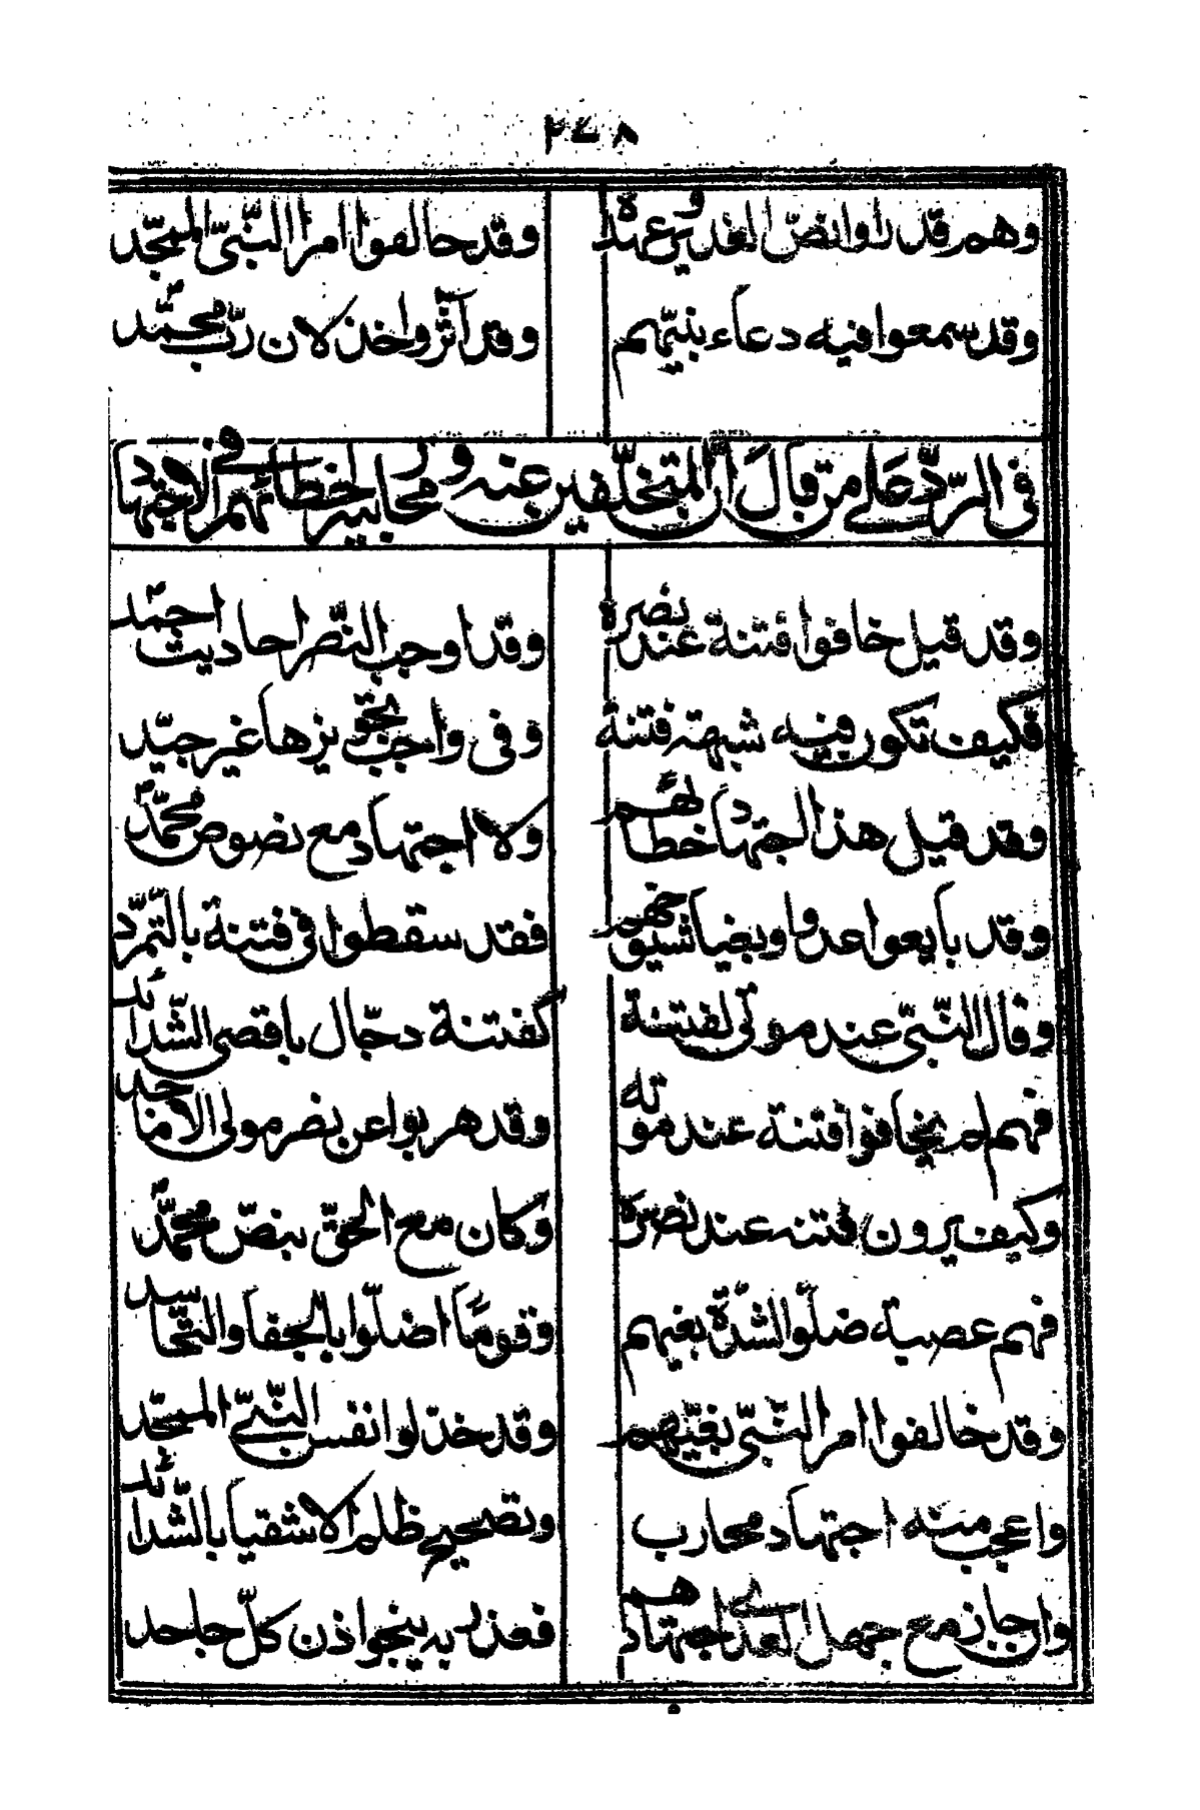 ٢٤٨
وهم قد راوا نص الغدير وعهده وقد خالفوا امر النّبىّ الممجّد
وقد سمعوا فيه دعاء نبيّهم وقد آثروا خذلان ربّ محمّد
فى الردّ على من قال انّ المتخلّفين عنه ومحاربيه لخطائهم فى الاجتهاد
وقد قيل خافوا فتنة عند نصره وقد اوجب النّصر احاديث احمد
فكيف تكون فيه شبهة فتنة وفى واجب تجويزها غير جيّد
وقد قيل هذا اجتهاد خطا لهم ولا اجتهاد مع نصوص محمّد
وقد بايعوا عدوا وبغيا شيوخهم فقد سقطوا فى فتنة بالتّمرّد
وقال النّبىّ عند موتى لفتنة كفتنة دجّال باقصى الشّدائد
فهم لم يخافوا فتنة عند موته وقد هربوا عن نصر مولى الاماجد
وكيف يرون فتنه عند نصره وكان مع الحقّ بنصّ محمّد
فهم عصبة ضلّوا لشدّة بغيهم وقوما اضلّوا بالجفا والتّحاسد
وقد خالفوا امر النّبىّ بغيّهم وقد خذّلوا نفس النّبىّ الممجّد
واعجب منه اجتهاد محارب وتصحيح ظلم الاشقيا بالشّدائد
وان جاز مع جهل لعذر اجتهادهم فعذر به ينجوا اذن كلّ جاحد